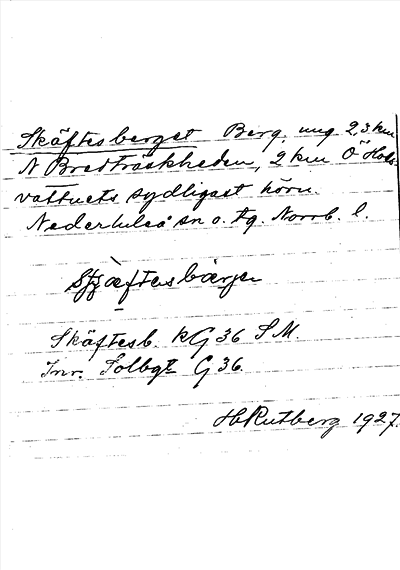 Skäftesberget Berg, ung 2,3 km
N Bredträskheden, 2 km Ö Hols-
vattnets sydligast hörn.
Nederluleå sn o. tg. Norrb. l.
Skäftesb. kG 36 S.M.
Inr. Solbgt G 36.
H Rutberg 1927.